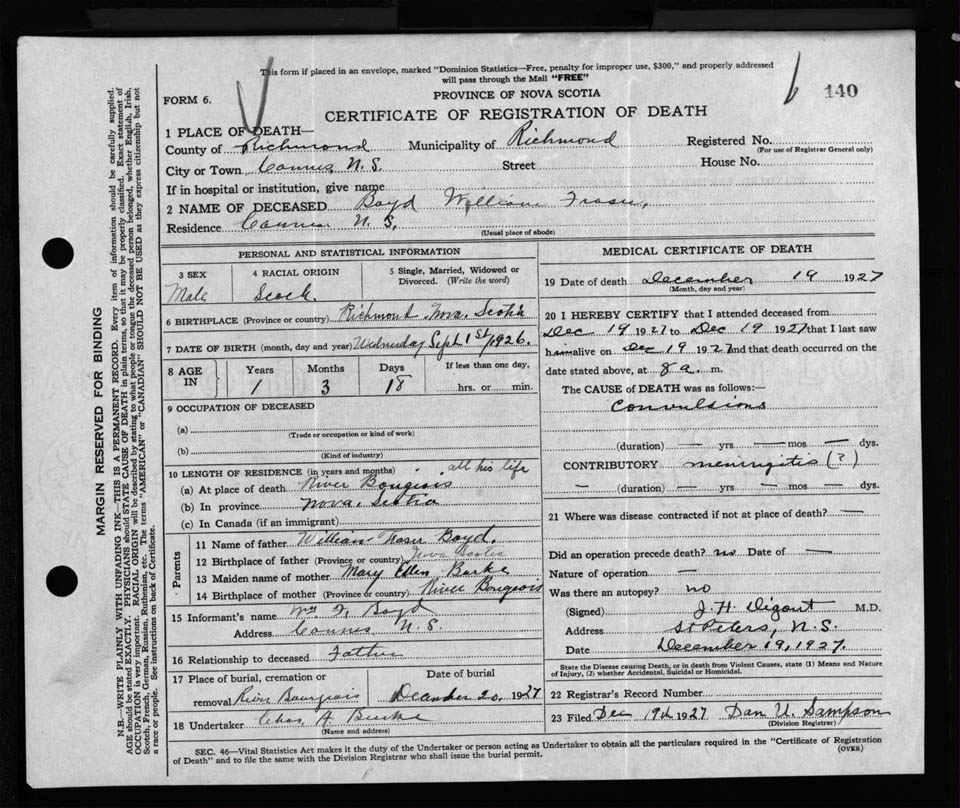 This form if placed in an envelope, marked "Dominion Statistics—Free, penalty for improper use, $300," and properly addressed
will pass through the Mail "FREE"
140
FORM 6.
PROVINCE OF NOVA SCOTIA
CERTIFICATE OF REGISTRATION OF DEATH
1 PLACE OF DEATH—
County of Richmond Municipality of Richmond Registered No.
(For use of Registrar General only)
City or Town Cannes N.S. Street House No.
If in hospital or institution, give name
2 NAME OF DECEASED Boyd William Fraser,
Residence Cannes N. S.
(Usual place of abode)
PERSONAL AND STATISTICAL INFORMATION
3 SEX 4 RACIAL ORIGIN 5 Single, Married, Widowed or
Divorced. (Write the word)
Male Scotch
6 BIRTHPLACE (Province or country) Richmond Nova Scotia
7 DATE OF BIRTH (month, day and year) Wednesday Sept 1st, 1926.
8 AGE IN Years Months Days If less than one day,
1 3 18 hrs. or min.
9 OCCUPATION OF DECEASED
(a)
(Trade or occupation or kind of work)
(b)
(Kind of industry)
10 LENGTH OF RESIDENCE (in years and months) all his life
(a) At place of death River Bourgeois
(b) In province Nova Scotia
(c) In Canada (if an immigrant)
Parents
11 Name of father William Fraser Boyd.
12 Birthplace of father (Province or country) Nova Scotia
13 Maiden name of mother Mary Ellen Burke
14 Birthplace of mother (Province or country) River Bourgeois
15 Informant's name Wm F. Boyd
Address Cannes N.S.
16 Relationship to deceased Father
17 Place of burial, cremation or Date of burial
removal River Bourgeois December 20, 1927
18 Undertaker Chas A Burke
(Name and address)
MEDICAL CERTIFICATE OF DEATH
19 Date of death December 19 1927
(Month, day and year)
20 I HEREBY CERTIFY that I attended deceased from
Dec 19 1927 to Dec 19 1927 that I last saw
him alive on Dec 19 1927 and that death occurred on the
date stated above, at 8 a. m.
The CAUSE of DEATH was as follows:—
Convulsions
(duration) — yrs — mos — dys.
CONTRIBUTORY meningitis (?)
— (duration) — yrs. — mos. — dys.
21 Where was disease contracted if not at place of death? —
Did an operation precede death? no Date of —
Nature of operation —
Was there an autopsy? no
(Signed) J. H. Digout M.D.
Address St Peters, N.S.
Date December 19, 1927.
State the Disease causing Death, or in death from Violent Causes, state (1) Means and Nature
of Injury, (2) whether Accidental, Suicidal or Homicidal.
22 Registrar's Record Number
23 Filed Dec 19th 1927 Dan U. Sampson
(Division Registrar)
SEC. 46—Vital Statistics Act makes it the duty of the Undertaker or person acting as Undertaker to obtain all the particulars required in the "Certificate of Registration
of Death" and to file the same with the Division Registrar who shall issue the burial permit.
(OVER)
MARGIN RESERVED FOR BINDING
N.B.—WRITE PLAINLY WITH UNFADING INK—THIS IS A PERMANENT RECORD. Every item of information should be carefully supplied.
AGE should be stated EXACTLY. PHYSICIANS should STATE CAUSE OF DEATH in plain terms, so that it may be properly classified. Exact statement of
OCCUPATION is very important. RACIAL ORIGIN will be described by stating to what people or tongue the deceased person belonged, whether English, Irish,
Scotch, French, German, Russian, Ruthenian, etc. The terms "AMERICAN" or "CANADIAN" SHOULD NOT BE USED as they express citizenship but not
a race or people. See instructions on back of Certificate.